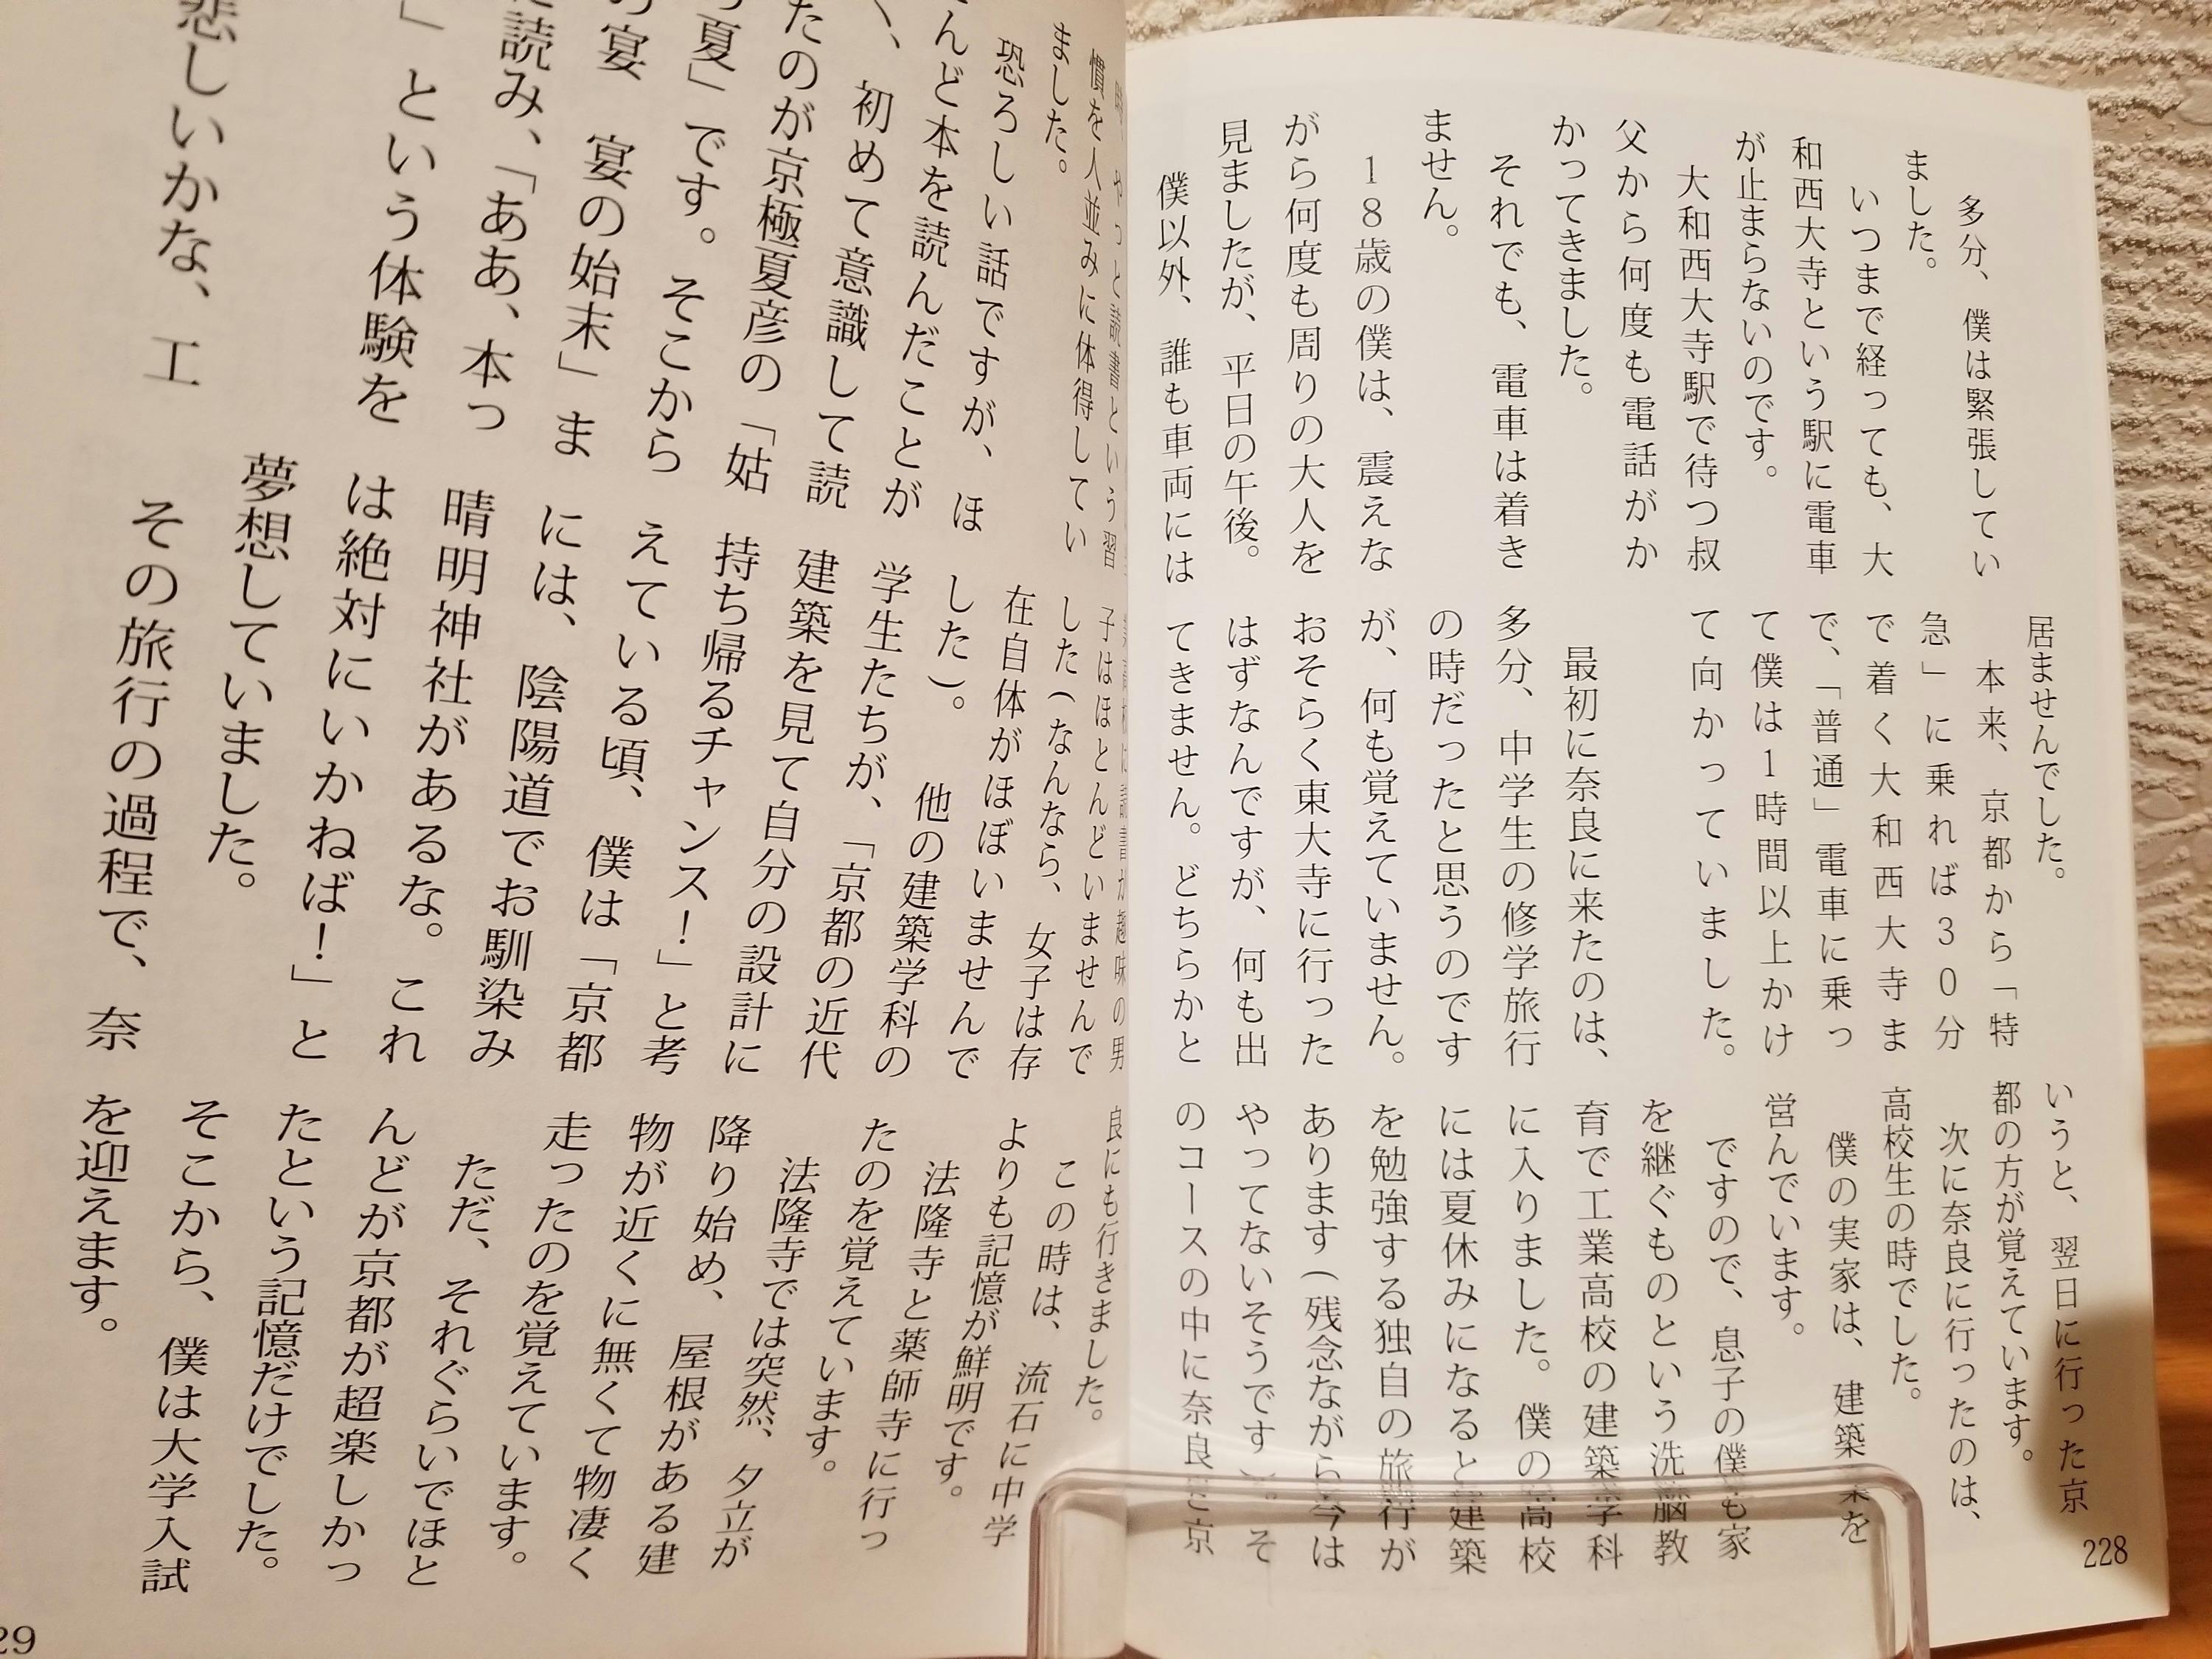 多分、僕は緊張してい
ました。
いつまで経っても、大
和西大寺という駅に電車
が止まらないのです。
大和西大寺駅で待つ叔
父から何度も電話がか
かってきました。
それでも、電車は着き
ません。
18歳の僕は、震えな
がら何度も周りの大人を
見ましたが、平日の午後。
僕以外、誰も車両には
居ませんでした。
本来、京都から「特
急」に乗れば30分
で着く大和西大寺ま
で、「普通」電車に乗っ
て僕は1時間以上かけ
て向かっていました。
最初に奈良に来たのは、
多分、中学生の修学旅行
の時だったと思うのです
が、何も覚えていません。
おそらく東大寺に行った
はずなんですが、何も出
てきません。どちらかと
いうと、翌日に行った京
都の方が覚えています。
次に奈良に行ったのは、
高校生の時でした。
僕の実家は、建築業を
営んでいます。
ですので、息子の僕も家
を継ぐものという洗脳教
育で工業高校の建築学科
に入りました。僕の高校
には夏休みになると建築
を勉強する独自の旅行が
あります(残念ながら今は
やってないそうです)。そ
のコースの中に奈良と京
228
やっと読書という習
慣を人並みに体得してい
ました。
恐ろしい話ですが、ほ
とんど本を読んだことが
、初めて意識して読
たのが京極夏彦の「姑
夏」です。そこから
の宴 宴の始末」ま
読み、「ああ、本っ
」という体験を
悲しいかな、工
読書が趣味の男
子はほとんどいませんで
した(なんなら、女子は存
在自体がほぼいませんで
した)。 他の建築学科の
学生たちが、「京都の近代
建築を見て自分の設計に
持ち帰るチャンス!」と考
えている頃、僕は「京都
には、陰陽道でお馴染み
晴明神社があるな。これ
は絶対にいかねば!」と
夢想していました。
その旅行の過程で、奈
良にも行きました。
この時は、流石に中学
よりも記憶が鮮明です。
法隆寺と薬師寺に行っ
たのを覚えています。
法隆寺では突然、夕立が
降り始め、屋根がある建
物が近くに無くて物凄く
走ったのを覚えています。
ただ、それぐらいでほと
んどが京都が超楽しかっ
たという記憶だけでした。
そこから、僕は大学入試
を迎えます。
29